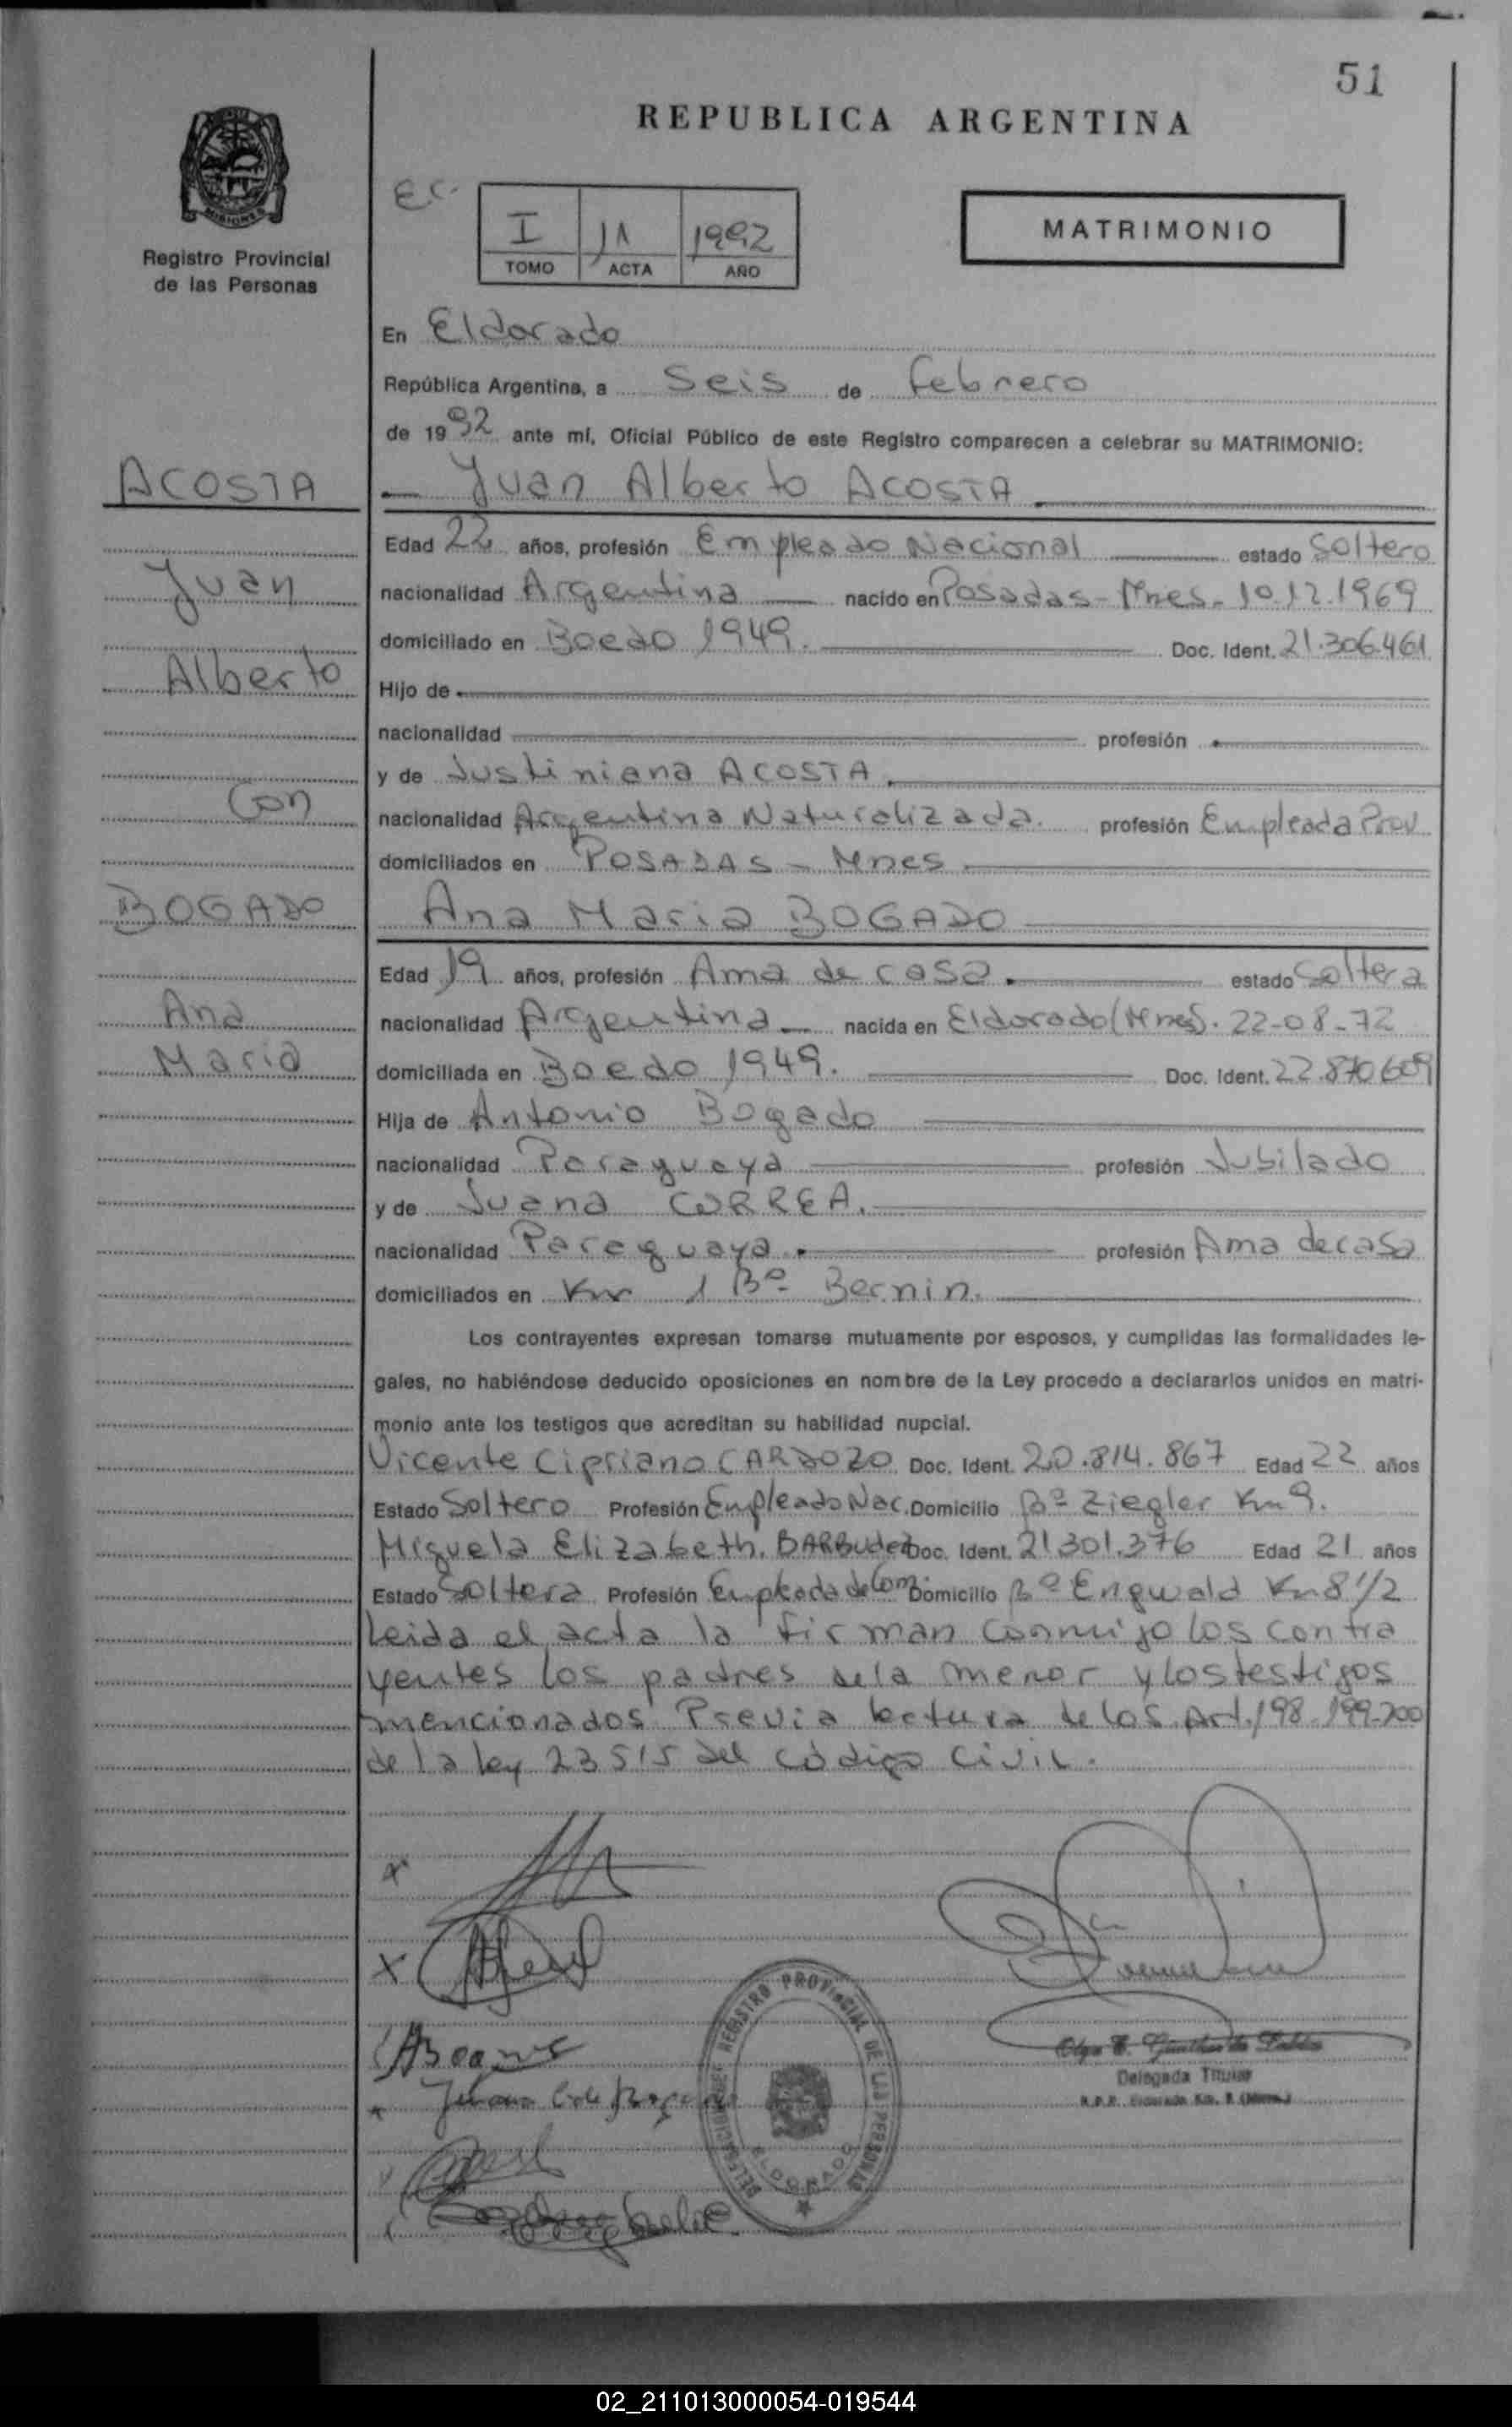 51
REPUBLICA ARGENTINA
MISIONES
Registro Provincial
de las Personas
E.C.
I 11 1992
TOMO ACTA AÑO
MATRIMONIO
En Eldorado
República Argentina, a Seis de febrero
de 1992 ante mí, Oficial Público de este Registro comparecen a celebrar su MATRIMONIO:
ACOSTA
Juan Alberto ACOSTA
Edad 22 años, profesión Empleado Nacional estado Soltero
Juan
nacionalidad Argentina nacido en Posadas - Mnes - 10.12.1969
domiciliado en Boedo 1949. Doc. Ident. 21.306.461
Alberto
Hijo de
nacionalidad profesión
y de Justiniana ACOSTA
Con
nacionalidad Argentina Naturalizada. profesión Empleada Prov
domiciliados en POSADAS - Mnes
BOGADO
Ana Maria BOGADO
Edad 19 años, profesión Ama de casa. estado Soltera
Ana
nacionalidad Argentina nacida en Eldorado (Mnes). 22-08-72
Maria
domiciliada en Boedo 1949. Doc. Ident. 22.870.609
Hija de Antonio Bogado
nacionalidad Paraguaya profesión Jubilado
y de Juana CORREA.
nacionalidad Paraguaya. profesión Ama de casa
domiciliados en Km 1 Bº Bernin.
Los contrayentes expresan tomarse mutuamente por esposos, y cumplidas las formalidades le-
gales, no habiéndose deducido oposiciones en nombre de la Ley procedo a declararlos unidos en matri-
monio ante los testigos que acreditan su habilidad nupcial.
Vicente Cipriano CARDOZO Doc. Ident. 20.814.867 Edad 22 años
Estado Soltero Profesión Empleado Nac. Domicilio Bº Ziegler Km 9.
Miguela Elizabeth. BARBUDEZ Doc. Ident. 21301.376 Edad 21 años
Estado Soltera Profesión Empleada de Com. Domicilio Bº Engwald Km 8 1/2
Leida el acta la firman conmigo los contra
yentes los padres de la menor y los testigos
mencionados Previa lectura de los Art. 198-199-200
de la ley 23515 del código civil.
REGISTRO PROVINCIAL DE LAS PERSONAS
ELDORADO
Delegada Titular
02_211013000054-019544